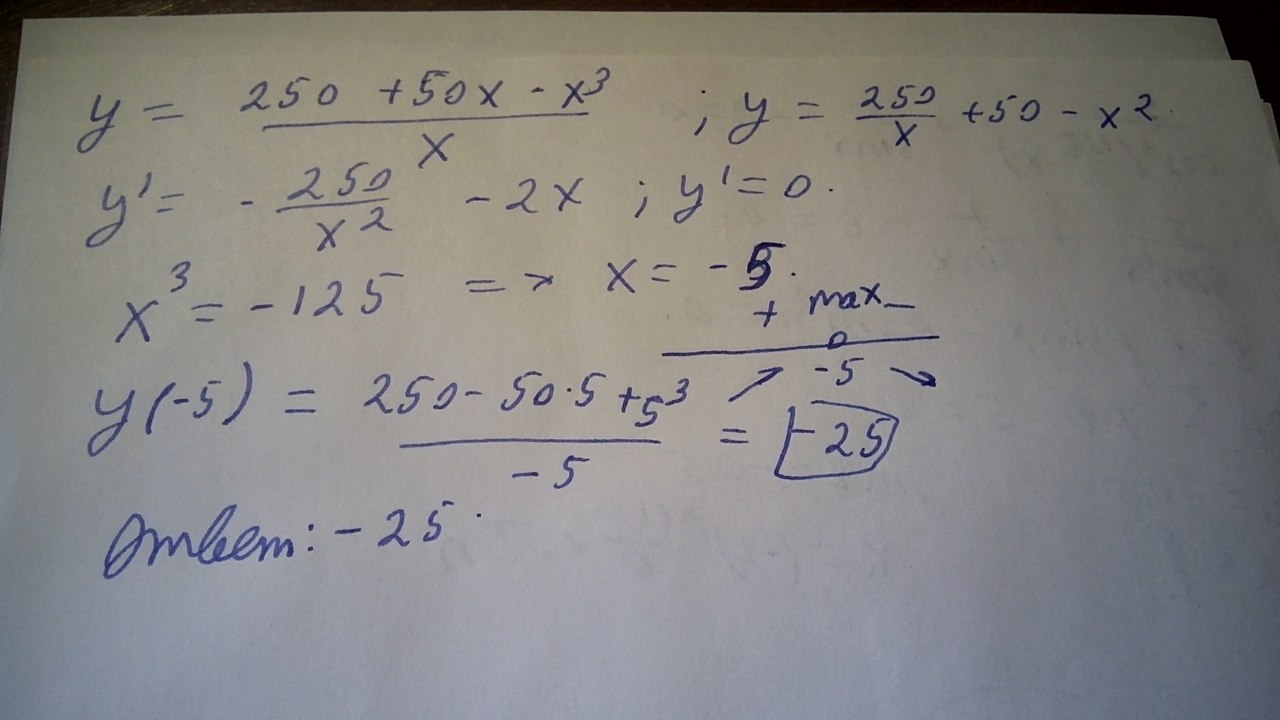 y = (250 + 50x - x³)/x ; y = 250/x + 50 - x²
y' = - 250/x² - 2x ; y' = 0.
x³ = -125 => x = -5.
+ max -
-5
y(-5) = (250 - 50·5 + 5³)/-5 = -25
Ответ: -25.